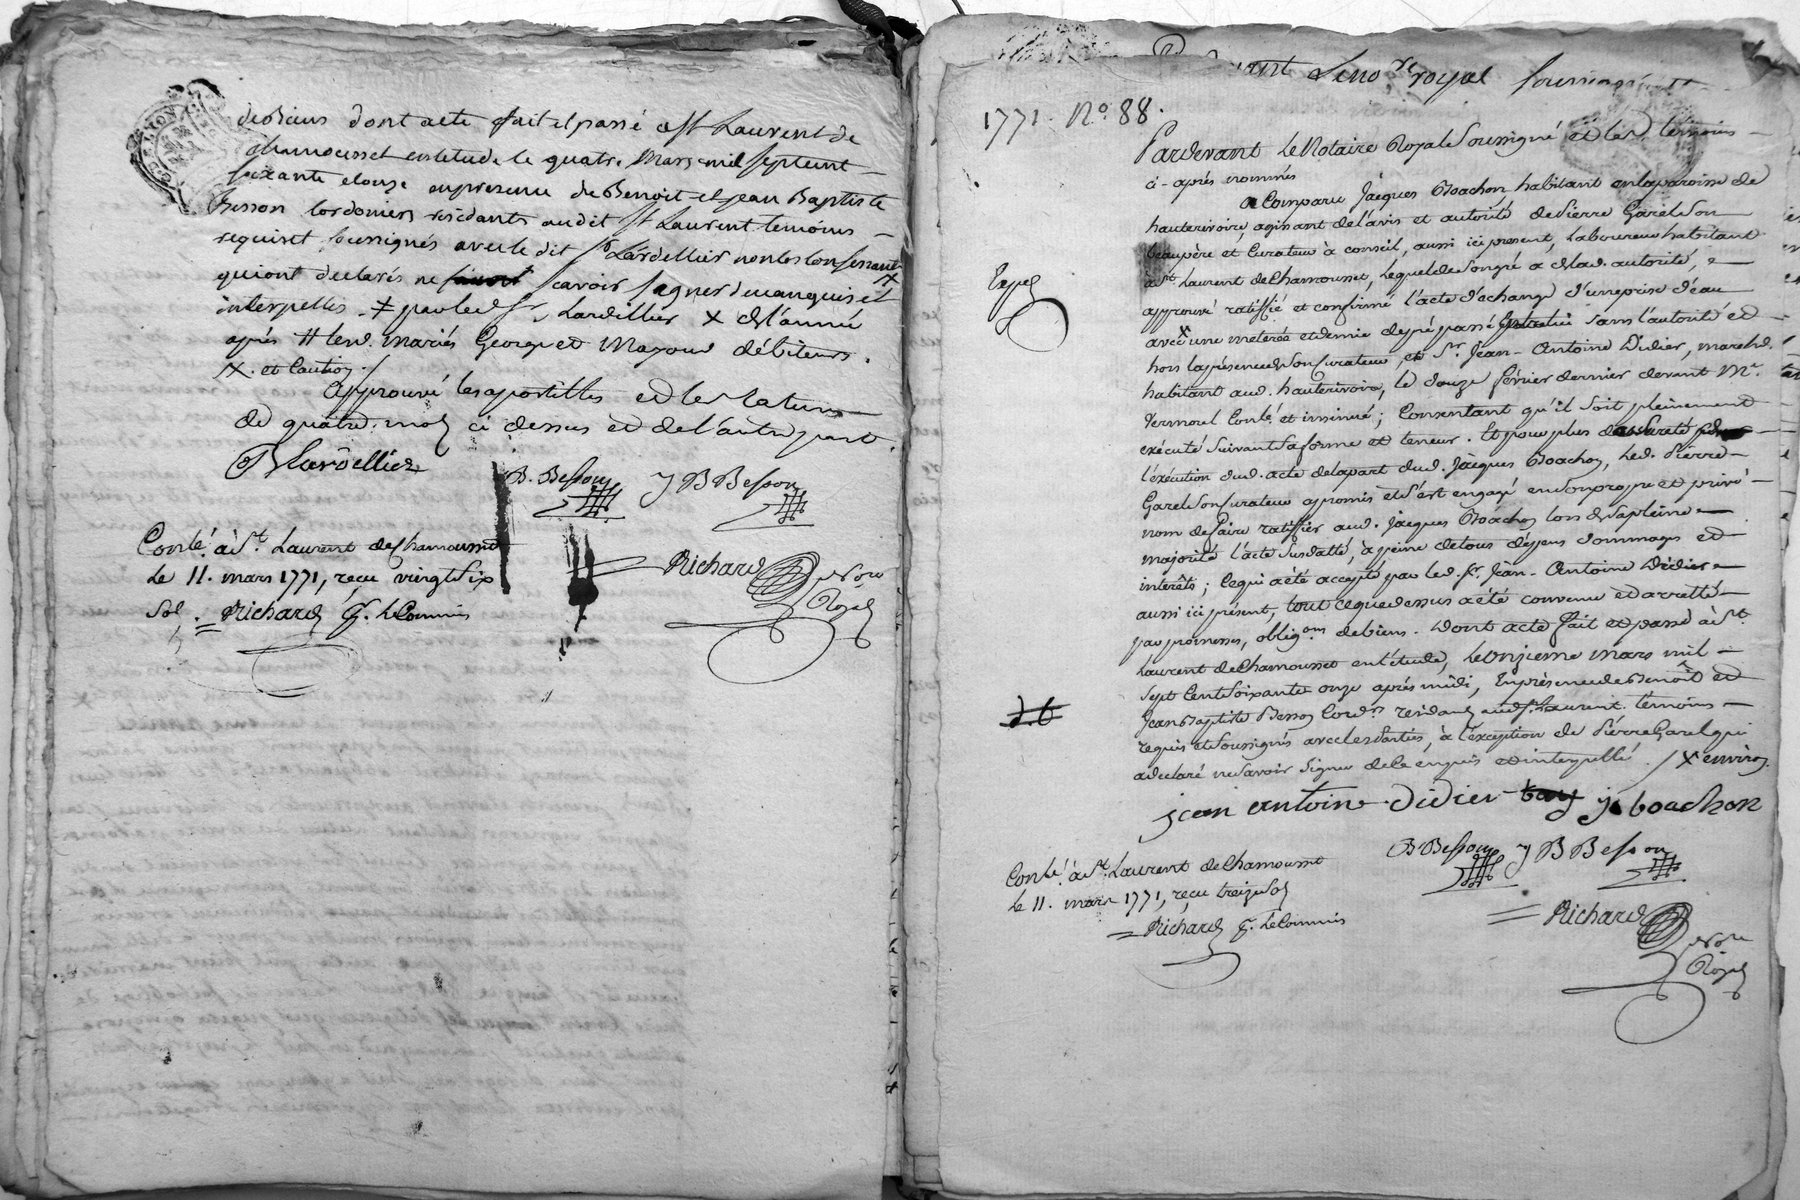 de biens dont acte fait et passé a St Laurent de
Chamousset en l'etude le quatre Mars mil sept cent
soixante et onze en presence de Benoit et Jean Baptiste
Besson Cordoniers residants audit St Laurent temoins
requis et soussignés avec le dit Sr Lardellier non les confessants
qui ont declarés ne savoir signer de ce enquis et
interpellés. ‡ par led. Sr Lardellier X de l'année
après # led. mariés George et débiteurs.
X. et Caution.
Approuvé les apostilles et les ratures
de quatre mots ci dessus et de l'autre part.
B Lardellier
B. Besson J B Besson
Conlé. à St. Laurent de Chamousset
Le 11. mars 1771, reçu vingt Six
Sol. Richard Gr. le Commis
Richard Nore
Royal
Le no.re royal soussigné
1771. No. 88.
Pardevant Le Notaire Royal Soussigné et les témoins
ci-après nommés
a Comparu Jacques Boachon habitant en la paroisse de
hauterivoire, agissant de l'avis et autorité de Pierre Garel Son
beaupère et Curateur à conseil, aussi ici présent, Laboureur habitant
à St. Laurent de Chamousset, Lequel de Son gré a de lad. autorité,
Exped
approuvé ratiffié et confirmé l'acte d'échange d'une prise d'eau
avec X une meterée et demie de pré passé Sans l'autorité et
hors la présence de Son Curateur, et Sr. Jean-Antoine Didier, marchd.
habitant aud. hauterivoire, le douze fevrier dernier devant Me.
Vermorel Conlé. et insinué; Consentant qu'il Soit pleinement
exécuté Suivant Sa forme et teneur. Et pour plus
l'exécution dud. acte de la part dud. Jacques Boachon, led. Pierre
Garel Son Curateur a promis et S'est engagé en Son propre et privé
nom de faire ratiffier aud. Jacques Boachon lors de Sa pleine
majorité l'acte Susdatté, à peine de tous dépens dommages et
interêts; Ce qui a été accepté par led. Sr. Jean-Antoine Didier
aussi ici présent, tout ce que dessus a été convenu et arretté
par promesses, obligons de biens. Dont acte fait et passé à St.
Laurent de Chamousset en l'étude, Le Onzieme mars mil
Sept Cent Soixante onze après midi, En présence de Benoît et
Jean Baptiste Besson Cordrs residants aud. St. Laurent témoins
requis et Soussignés avec les Parties, à l'exception de Pierre Garel qui
a declaré ne Savoir Signer de ce enquis et interpellé. / X environ
jean antoine didier j boachon
B Besson J B Besson
Conlé. à St. Laurent de Chamousset
Le 11. mars 1771, reçu treize Sols
Richard Gr. le Commis
Richard Nore
Royal